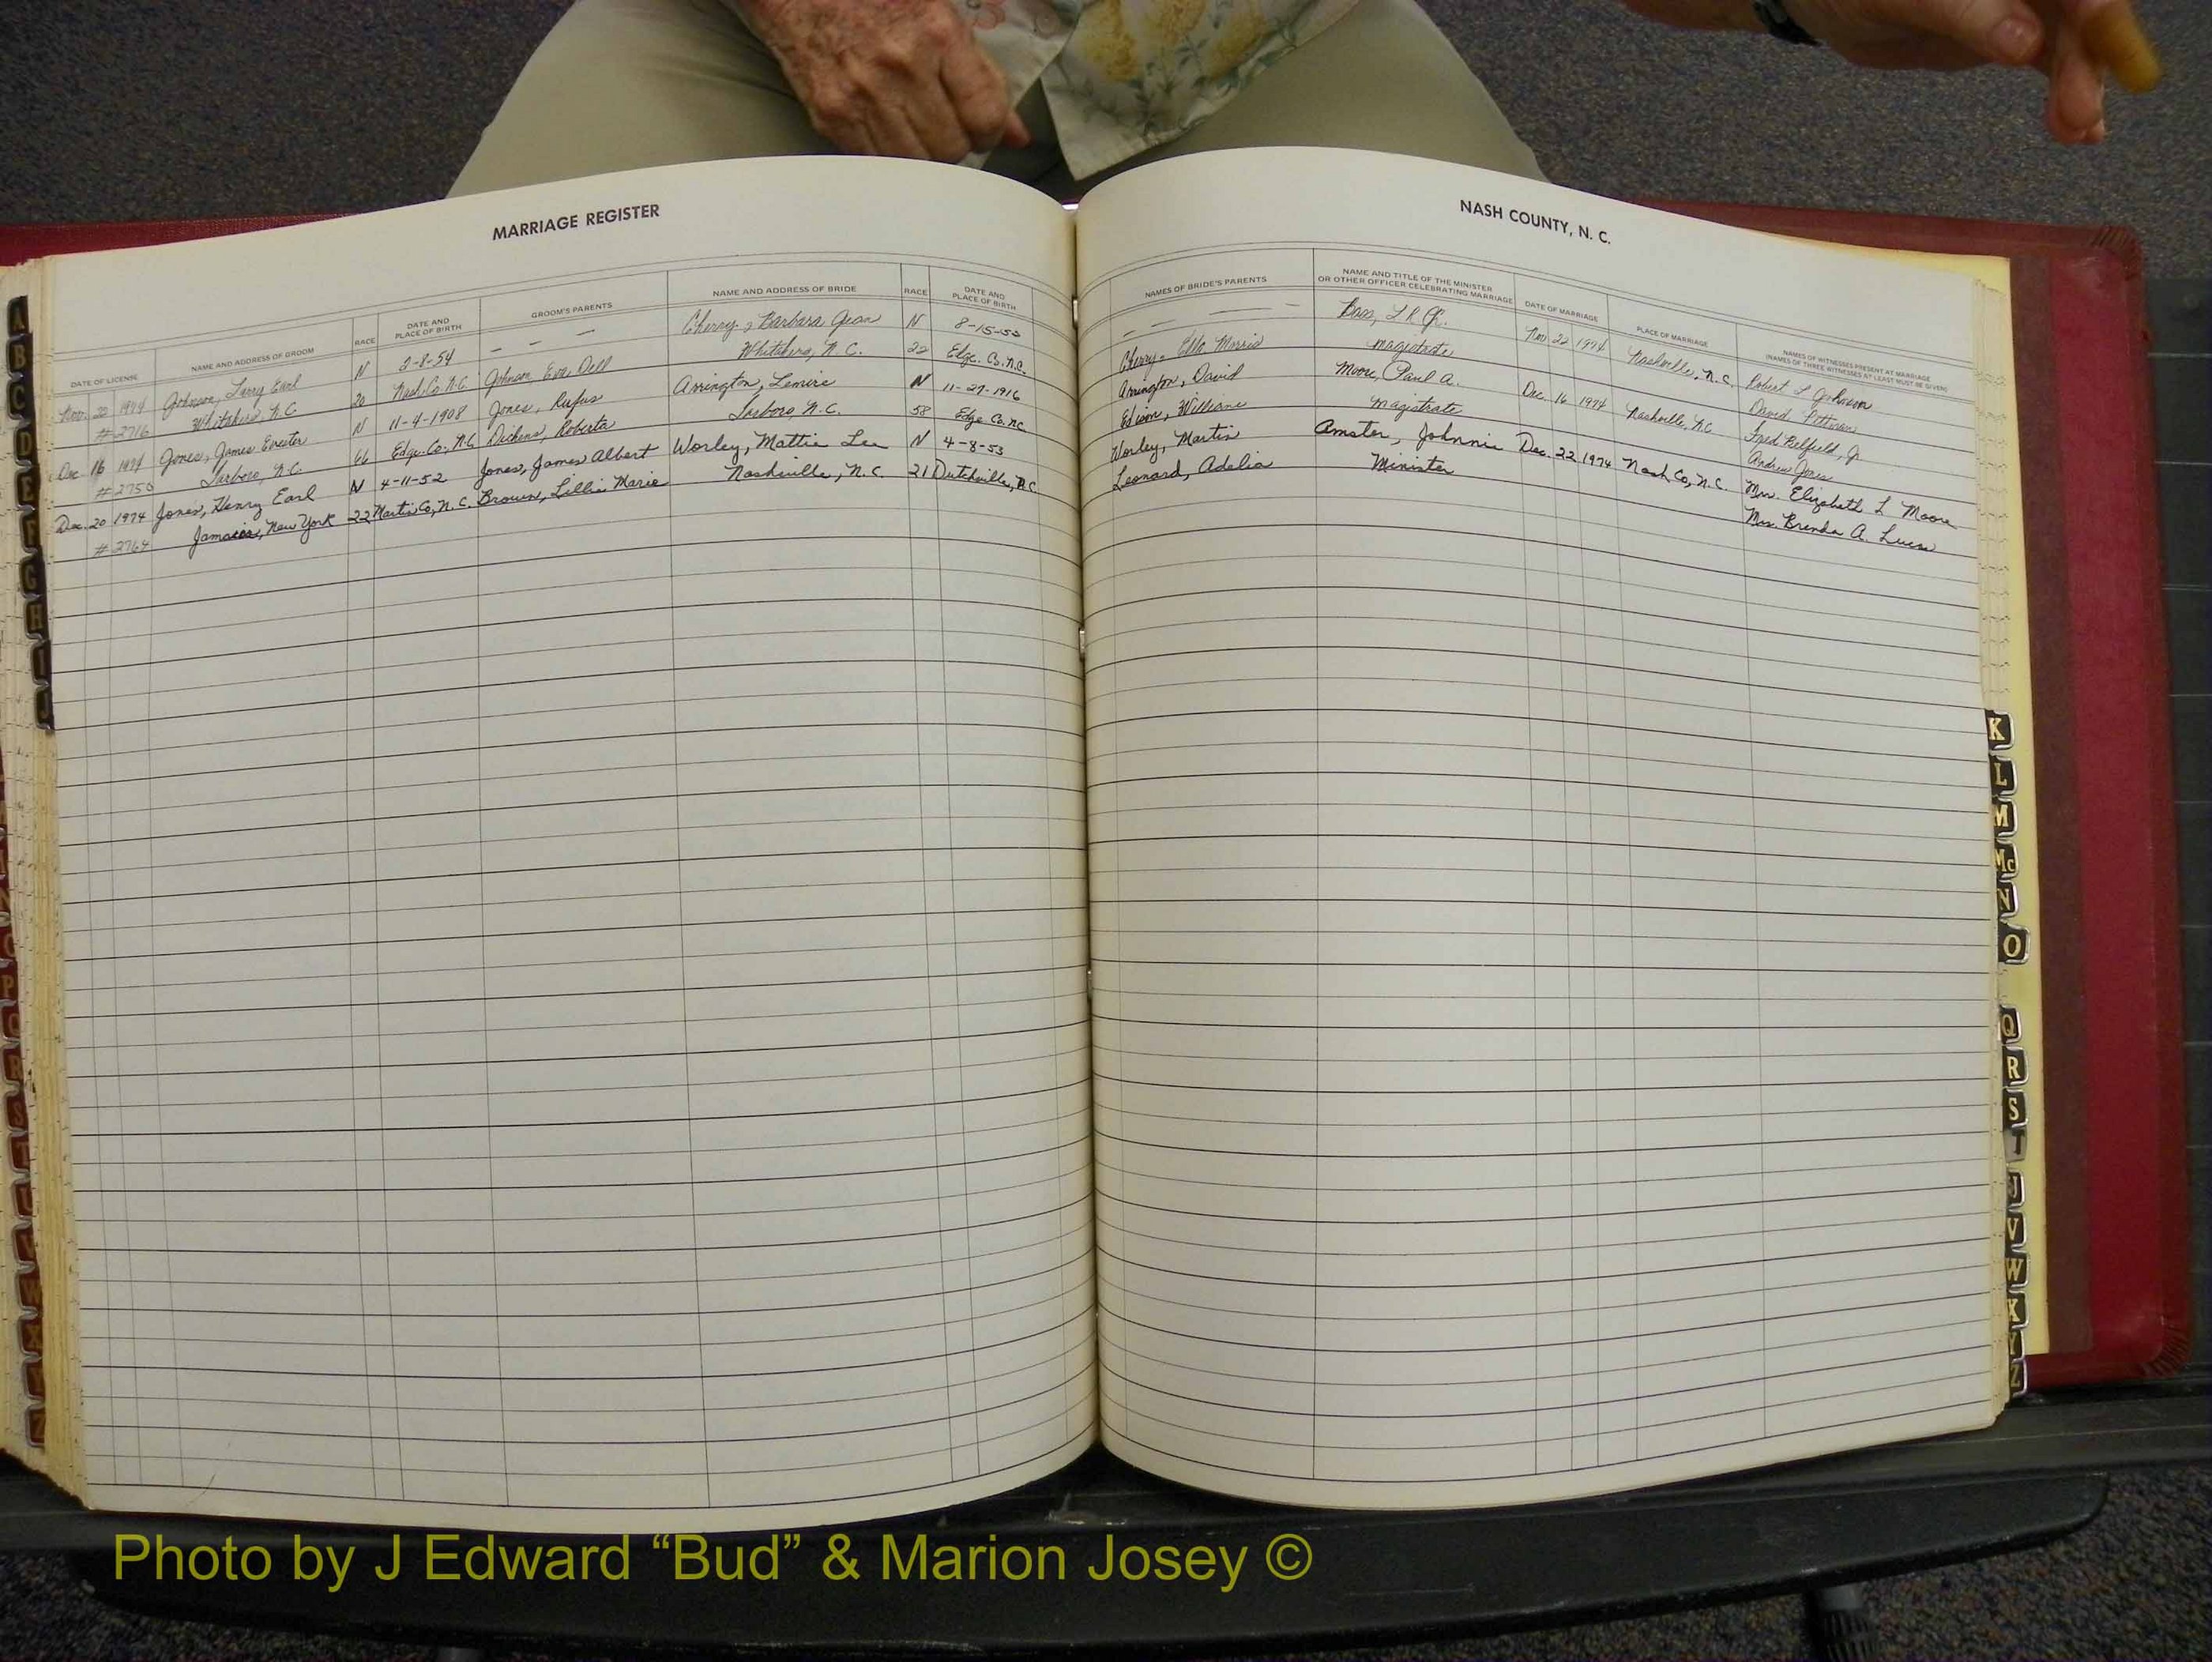 MARRIAGE REGISTER
NASH COUNTY, N. C.
DATE OF LICENSE NAME AND ADDRESS OF GROOM RACE DATE AND PLACE OF BIRTH GROOM'S PARENTS NAME AND ADDRESS OF BRIDE RACE DATE AND PLACE OF BIRTH
NAMES OF BRIDE'S PARENTS NAME AND TITLE OF THE MINISTER OR OTHER OFFICER CELEBRATING MARRIAGE DATE OF MARRIAGE PLACE OF MARRIAGE NAMES OF WITNESSES PRESENT AT MARRIAGE (NAMES OF THREE WITNESSES AT LEAST MUST BE GIVEN)
Nov. 22 1974 Johnson, Larry Earl N 2-8-54 — — — Cherry, Barbara Jean N 8-15-52 — — — Bass, L R Jr. Nov 22 1974 Nashville, N.C. Robert L Johnson
#2716 Whitakers, N.C. 20 Nash Co. N.C. Johnson Eva Dell Whitakers, N.C. 22 Edge. Co. N.C. Cherry, Morris magistrate David Pittman
Dec 16 1974 Jones, James Erester N 11-4-1908 Jones, Rufus Arrington, Lemire N 11-27-1916 Arrington, David Moore, Paul A. Dec. 16 1974 Nashville, N.C. Fred Belfield, Jr
#2750 Tarboro, N.C. 66 Edge. Co., N.C. Dickens, Roberta Tarboro N.C. 58 Edge Co. N.C. William magistrate Andrew Jones
Dec. 20 1974 Jones, Henry Earl N 4-11-52 Jones, James Albert Worley, Mattie Lee N 4-8-53 Worley, Martin Amster, Johnnie Dec. 22 1974 Nash Co, N.C. Mrs. Elizabeth L Moore
#2764 Jamaica, New York 22 Martin Co, N.C. Brown, Lillie Marie Nashville, N.C. 21 Dutchville, N.C. Leonard, Adelia Minister Mrs Brenda A. Lucas
A
B
C
D
E
F
G
H
I
J
K
L
M
Mc
N
O
Q
R
S
T
V
W
Y
Z
Photo by J Edward “Bud” & Marion Josey ©